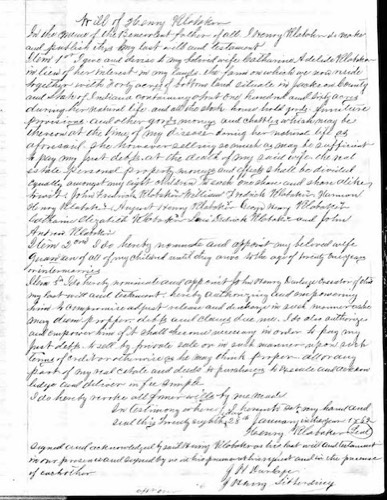 Will of Henry Klobeker
In the name of the Benevolent father of all I Henry Klobeker do make
and publish this my last will and testament
Item 1st I give and devise to my beloved wife Catharine Adelide Klobeker
in lieu of her interest in my lands the farm on which we now reside
together with Forty acres of bottom land situate in Jackson County
and State of Indiana containing about one hundred and sixty acres
during her natural life and all the stock household goods furniture
provisions and other goods moneys and chattles which may be
thereon at the time of my decease during her natural life as
aforesaid she however selling so much as may be sufficient
to pay my just debts at the death of my said wife the real
estate personal property money and effects shall be divided
equally amongst my eight children to each one share and share alike
towit John Frederick Klobeker William Fredrick Klobeker Harmon
Henry Klobeker August Henry Klobeker George Henry Klobeker
Elizabeth Klobeker Fredrick Klobeker and John
Andrew Klobeker
Item 2nd I do hereby nominate and appoint my beloved wife
Guardian of all of my children until they arive to the age of twenty one years
or intermarries
Item 3d I do hereby nominate and appoint Executor of this
my last will and testament, hereby authorizing and empowering
him to compromise adjust release and discharge in such manner as he
may deem proper debts and claims due me. I do also authorize
and empower him if it shall become necessary in order to pay my
just debts to sell by private sale or in such manner upon such
terms of credit or otherwise as he may think proper all or any
part of my real estate and deeds to purchasers to execute acknow
ledge and deliver in fee simple
I do hereby revoke all former wills by me made
In testimony whereof I hereunto set my hand and
seal this twenty eighth 28th January in the year 1862
Henry Klobeker Seal
Signed and acknowledged by said Henry Klobeker as his last will and testament
in our presence and signed by us in his presence at his request and in the presence
of each other
J H
J Henry